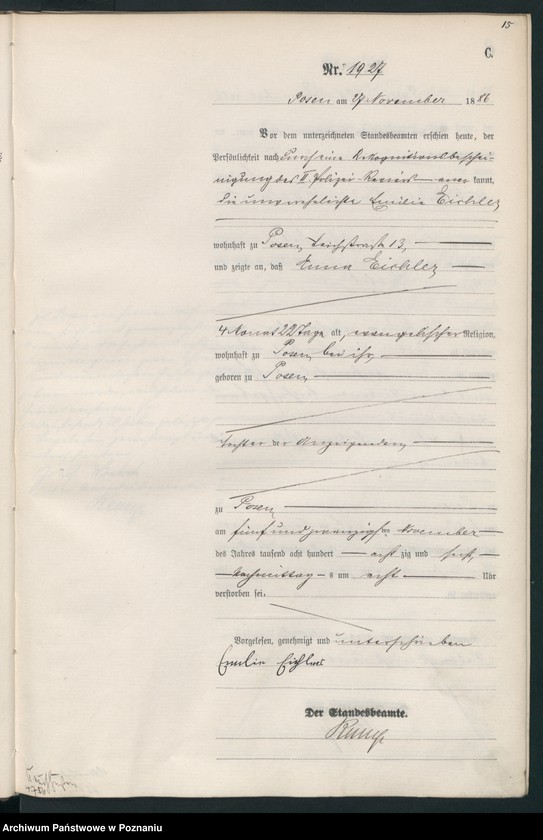 15
C.
Nr. 1927
Posen am 27 November 1886
Vor dem unterzeichneten Standesbeamten erschien heute, der
Persönlichkeit nach durch eine Rekognitionsbeschei-
nigung des II Polizei-Reviers aner kannt,
die unverehelichte Emilie Eichler
wohnhaft zu Posen, Teichstraße 13,
und zeigte an, daß Anna Eichler
4 Monat 22 Tage alt, evangelischer Religion,
wohnhaft zu Posen bei ihr,
geboren zu Posen,
Tochter der Anzeigenden,
zu Posen,
am fünf und zwanzigsten November
des Jahres tausend acht hundert acht zig und sechs,
Nachmittags um acht Uhr
verstorben sei.
Vorgelesen, genehmigt und unterschrieben
Emilie Eichler
Der Standesbeamte.
Archiwum Państwowe w Poznaniu